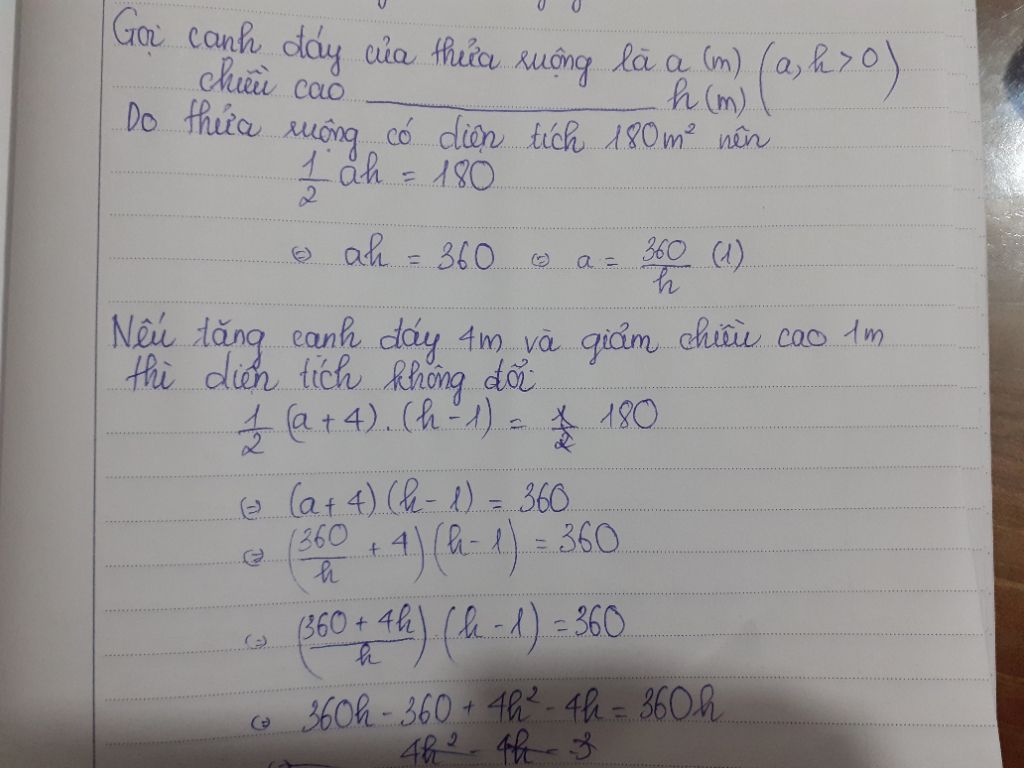 Gọi cạnh đáy của thửa ruộng là a (m) (a, h > 0)
chiều cao ____________ h (m)
Do thửa ruộng có diện tích 180m² nên
1/2 ah = 180
⇔ ah = 360 ⇔ a = 360/h (1)
Nếu tăng cạnh đáy 4m và giảm chiều cao 1m
thì diện tích không đổi
1/2 (a + 4).(h - 1) = 180
⇔ (a + 4)(h - 1) = 360
⇔ (360/h + 4)(h - 1) = 360
⇔ ((360 + 4h)/h)(h - 1) = 360
⇔ 360h - 360 + 4h² - 4h = 360h
4h² - 4h